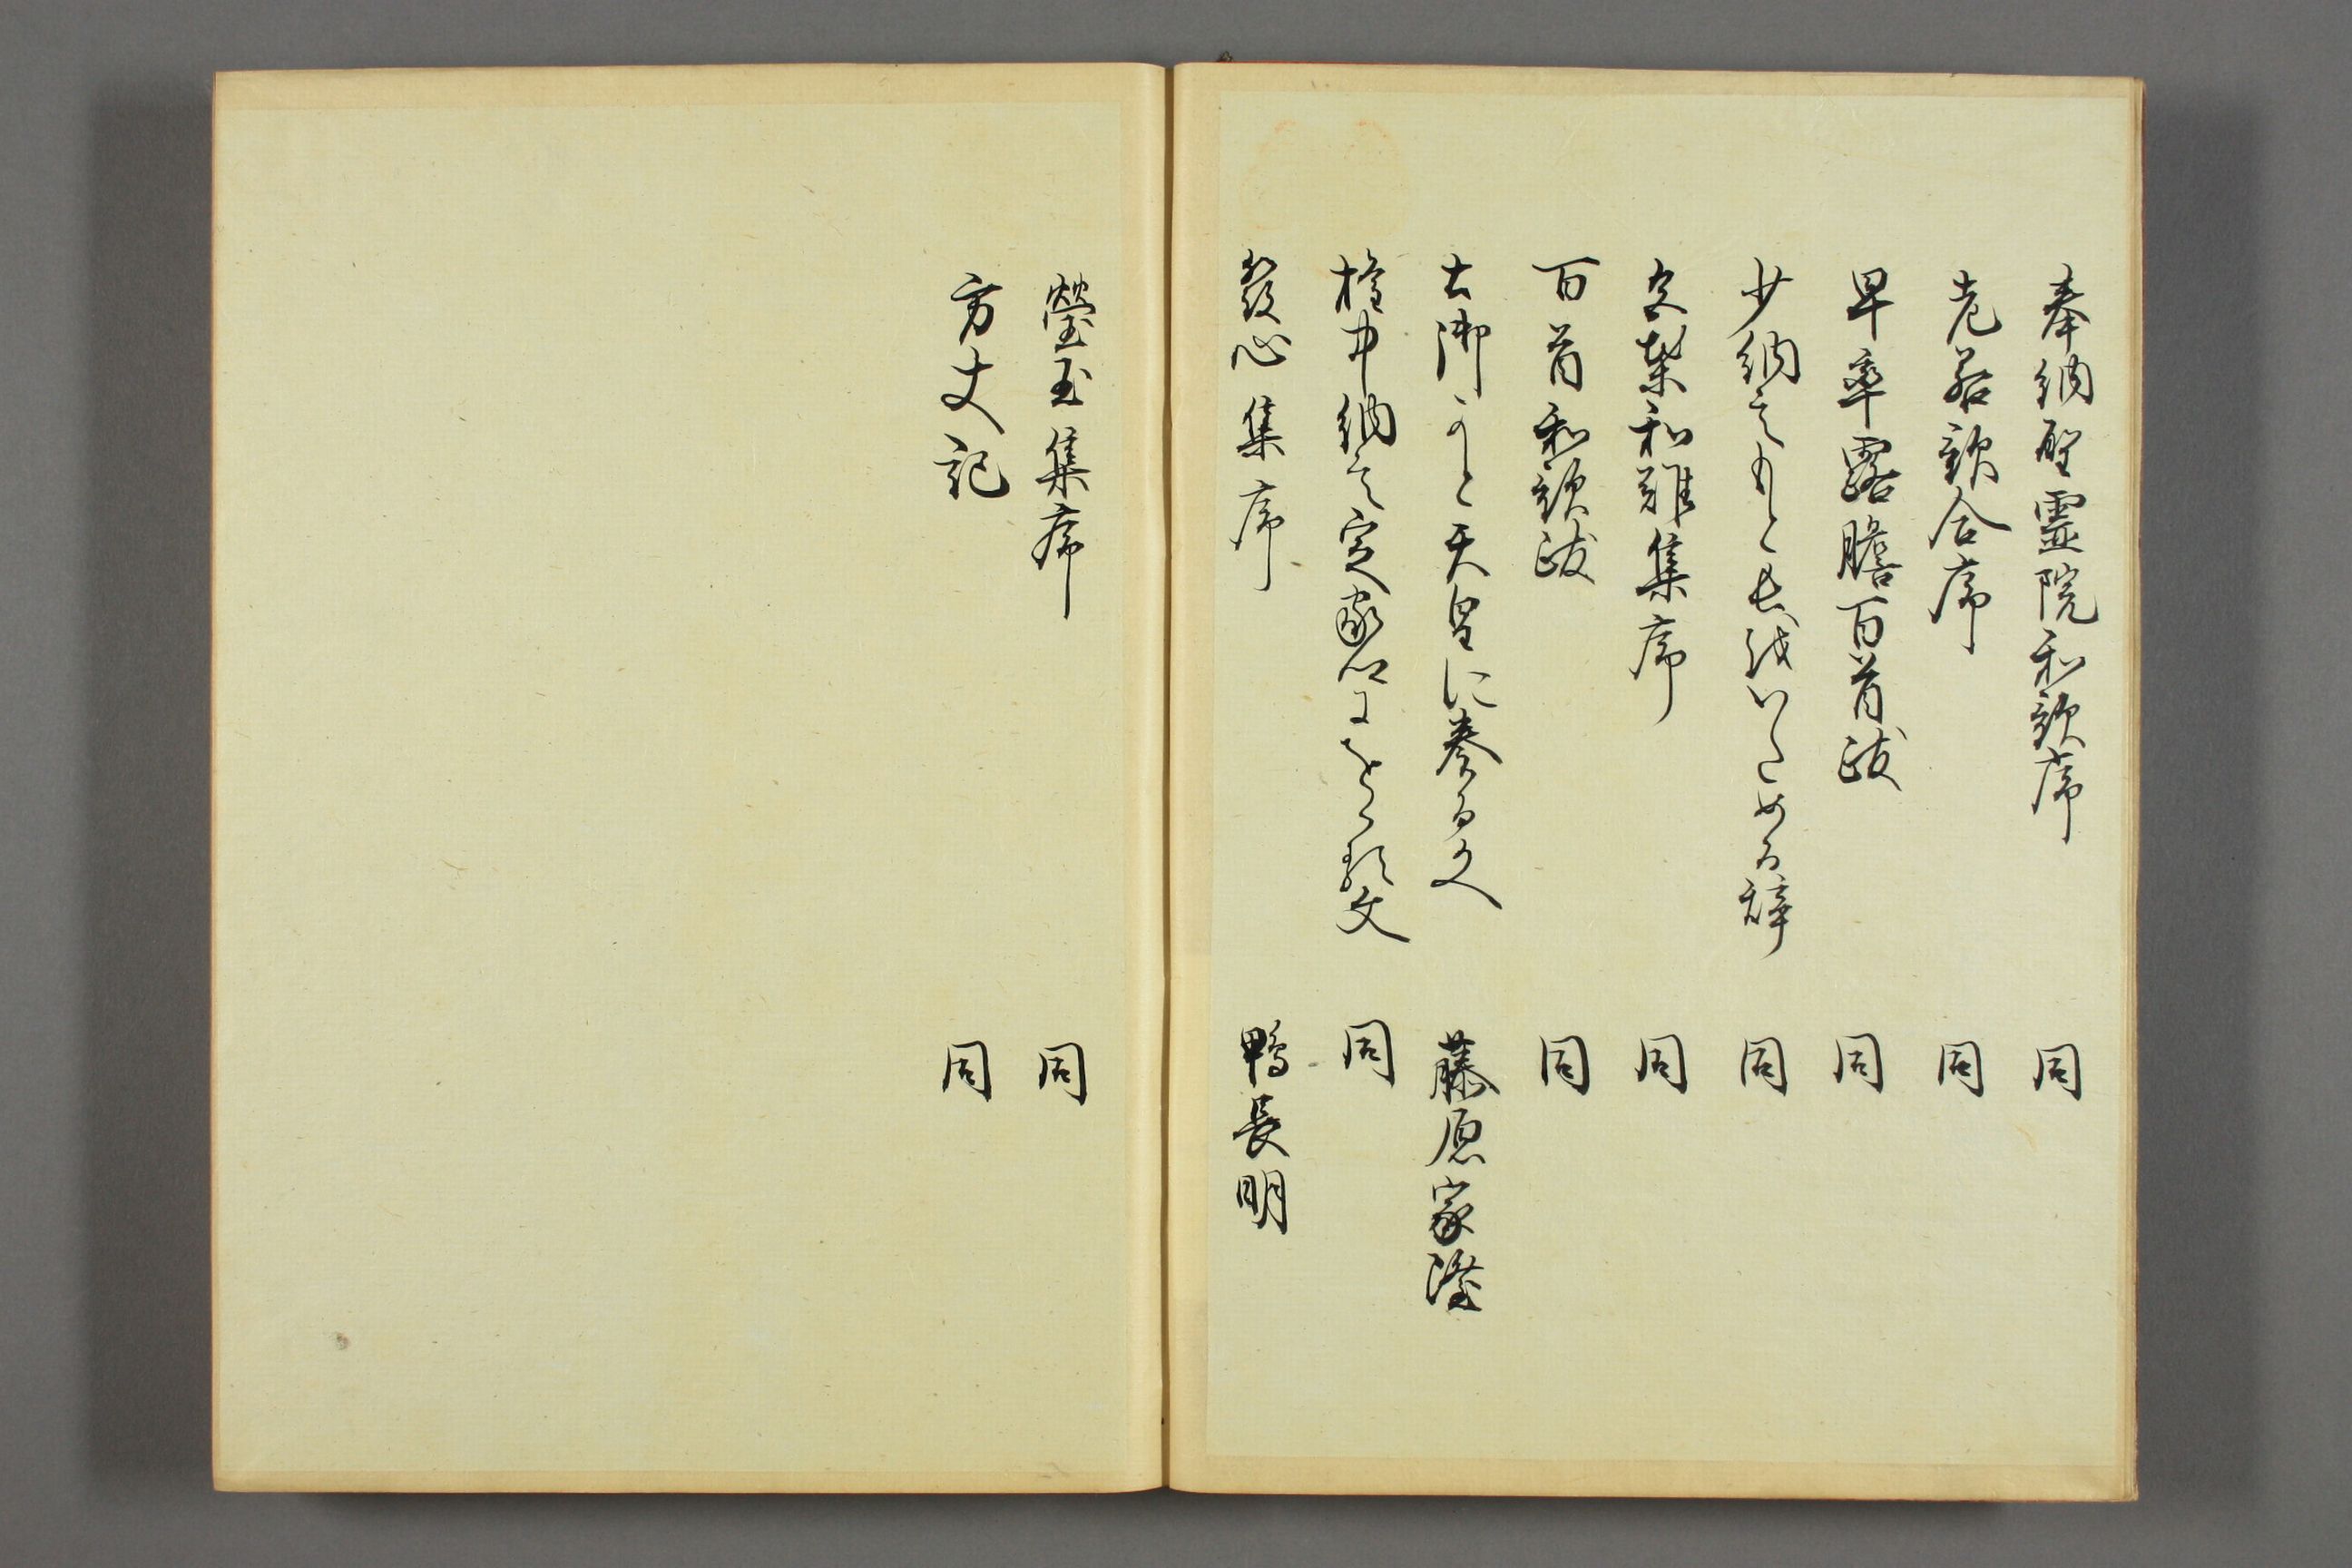 奉納聖霊院和歌序 同
老若歌合序 同
早率露膽百首跋 同
少納言もと長
文集和雑集序 同
百首和歌跋 同
土御かと天皇に奏る文 藤原家隆
権中納言定家卿におくる文 同
發心集序 鴨長明
瑩玉集序 同
方丈記 同